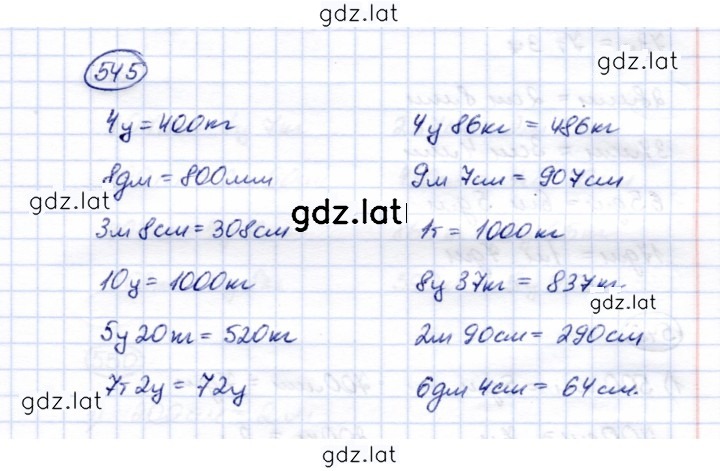 gdz.lat
545
gdz.lat
4ц = 400кг
4ц 86кг = 486кг
8дм = 800мм
9м 7см = 907см
gdz.lat
gdz.lat
3м 8см = 308см
1т = 1000кг
10ц = 1000кг
8ц 37кг = 837кг.
gdz.lat
5ц 20кг = 520кг
2м 90см = 290см
7т 2ц = 72ц
6дм 4см = 64см.
gdz.lat
gdz.lat
gdz.lat